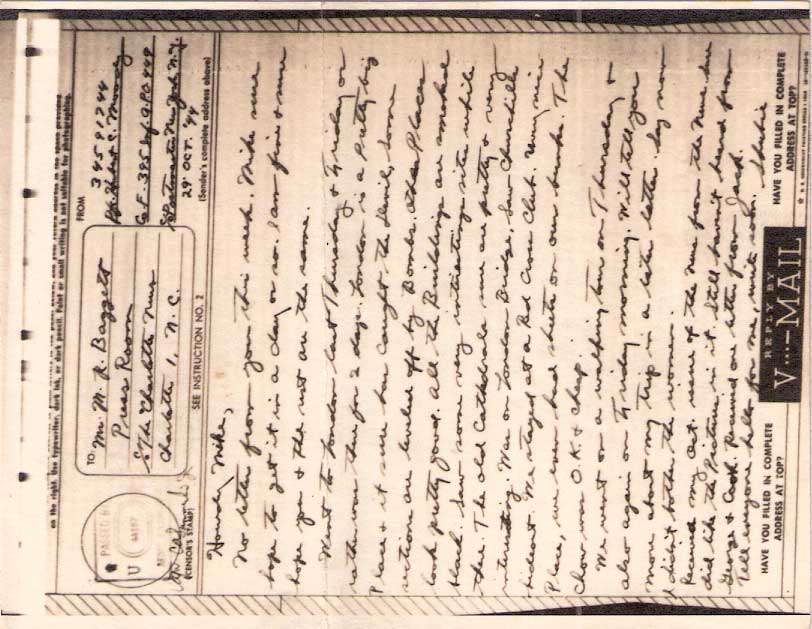 on the right. Use typewriter, dark ink, or dark pencil. Faint or small writing is not suitable for photographing.
TO
Mr. M. R. Bazzett
Press Room
c/o The Charlotte News
Charlotte 1, N.C.
FROM
34591744
Pfc. Hubert C. Moody
Co F. 395 Inf. A.P.O 449
c/o Postmaster New York N.Y.
29 OCT. '44
(Sender's complete address above)
PASSED
U
44187
(CENSOR'S STAMP)
SEE INSTRUCTION NO. 2
Howdy Mike,
No letter from you this week. Mike sure
hope to get it in a day or so. I am fine & sure
hope you & the rest are the same.
Went to London last Thursday & Friday or
rather was there for 2 days. London is a Pretty big
Place & it sure has caught the Devil, some
sections are leveled off by Bombs. Other Places
look pretty good. All the Buildings are smoked
black. Saw some very interesting sites while
there. The old Cathedrals sure are pretty & very
interesting. Was on London Bridge, Saw Churchills
hideout. We stayed at a Red Cross Club. Very nice
Place, we even had sheets on our bunks. The
Chow was O.K & cheap.
We went on a walking tour on Thursday &
also again on Friday morning. Will tell you
more about my trip in a later letter. Say now
I didn't bother the women.
Received my Oct. issue of the News from the News. Sure
did like the Pictures in it. Still haven't heard from
George & Cook. Received one letter from Jack.
Tell everyone hello for me, write soon.
HAVE YOU FILLED IN COMPLETE
ADDRESS AT TOP?
REPLY BY
V···—MAIL
HAVE YOU FILLED IN COMPLETE
ADDRESS AT TOP?